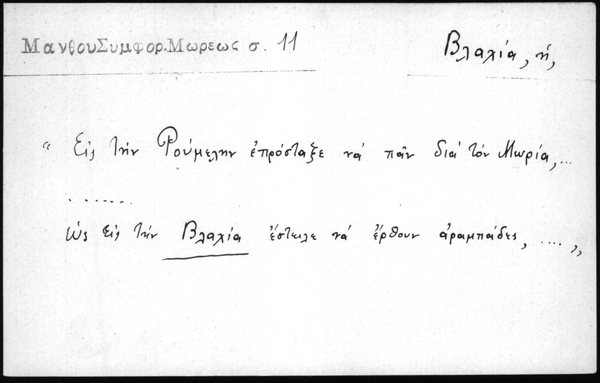 ΜανθουΣυμφορ.Μωρεως σ. 11
Βλαχία, ἡ,
“ Εἰς τὴν Ρούμελην ἐπρόσταξε νά πᾶν διά τόν Μωρία,...
.......
ὡς εἰς τήν Βλαχία ἔστειλε νά ἔρθουν ἀραμπάδες, ....,,